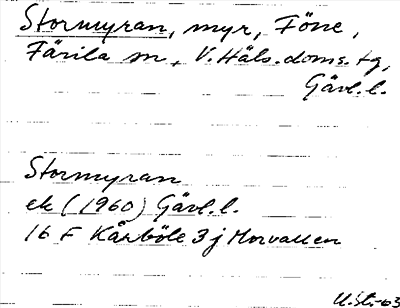 Stormyran, myr, Föne,
Färila sn, V. Häls. doms. tg,
Gävl. l.
Stormyran
ek (1960) Gävl. l.
16 F Kårböle 3 j Morvallen
U.St.-63